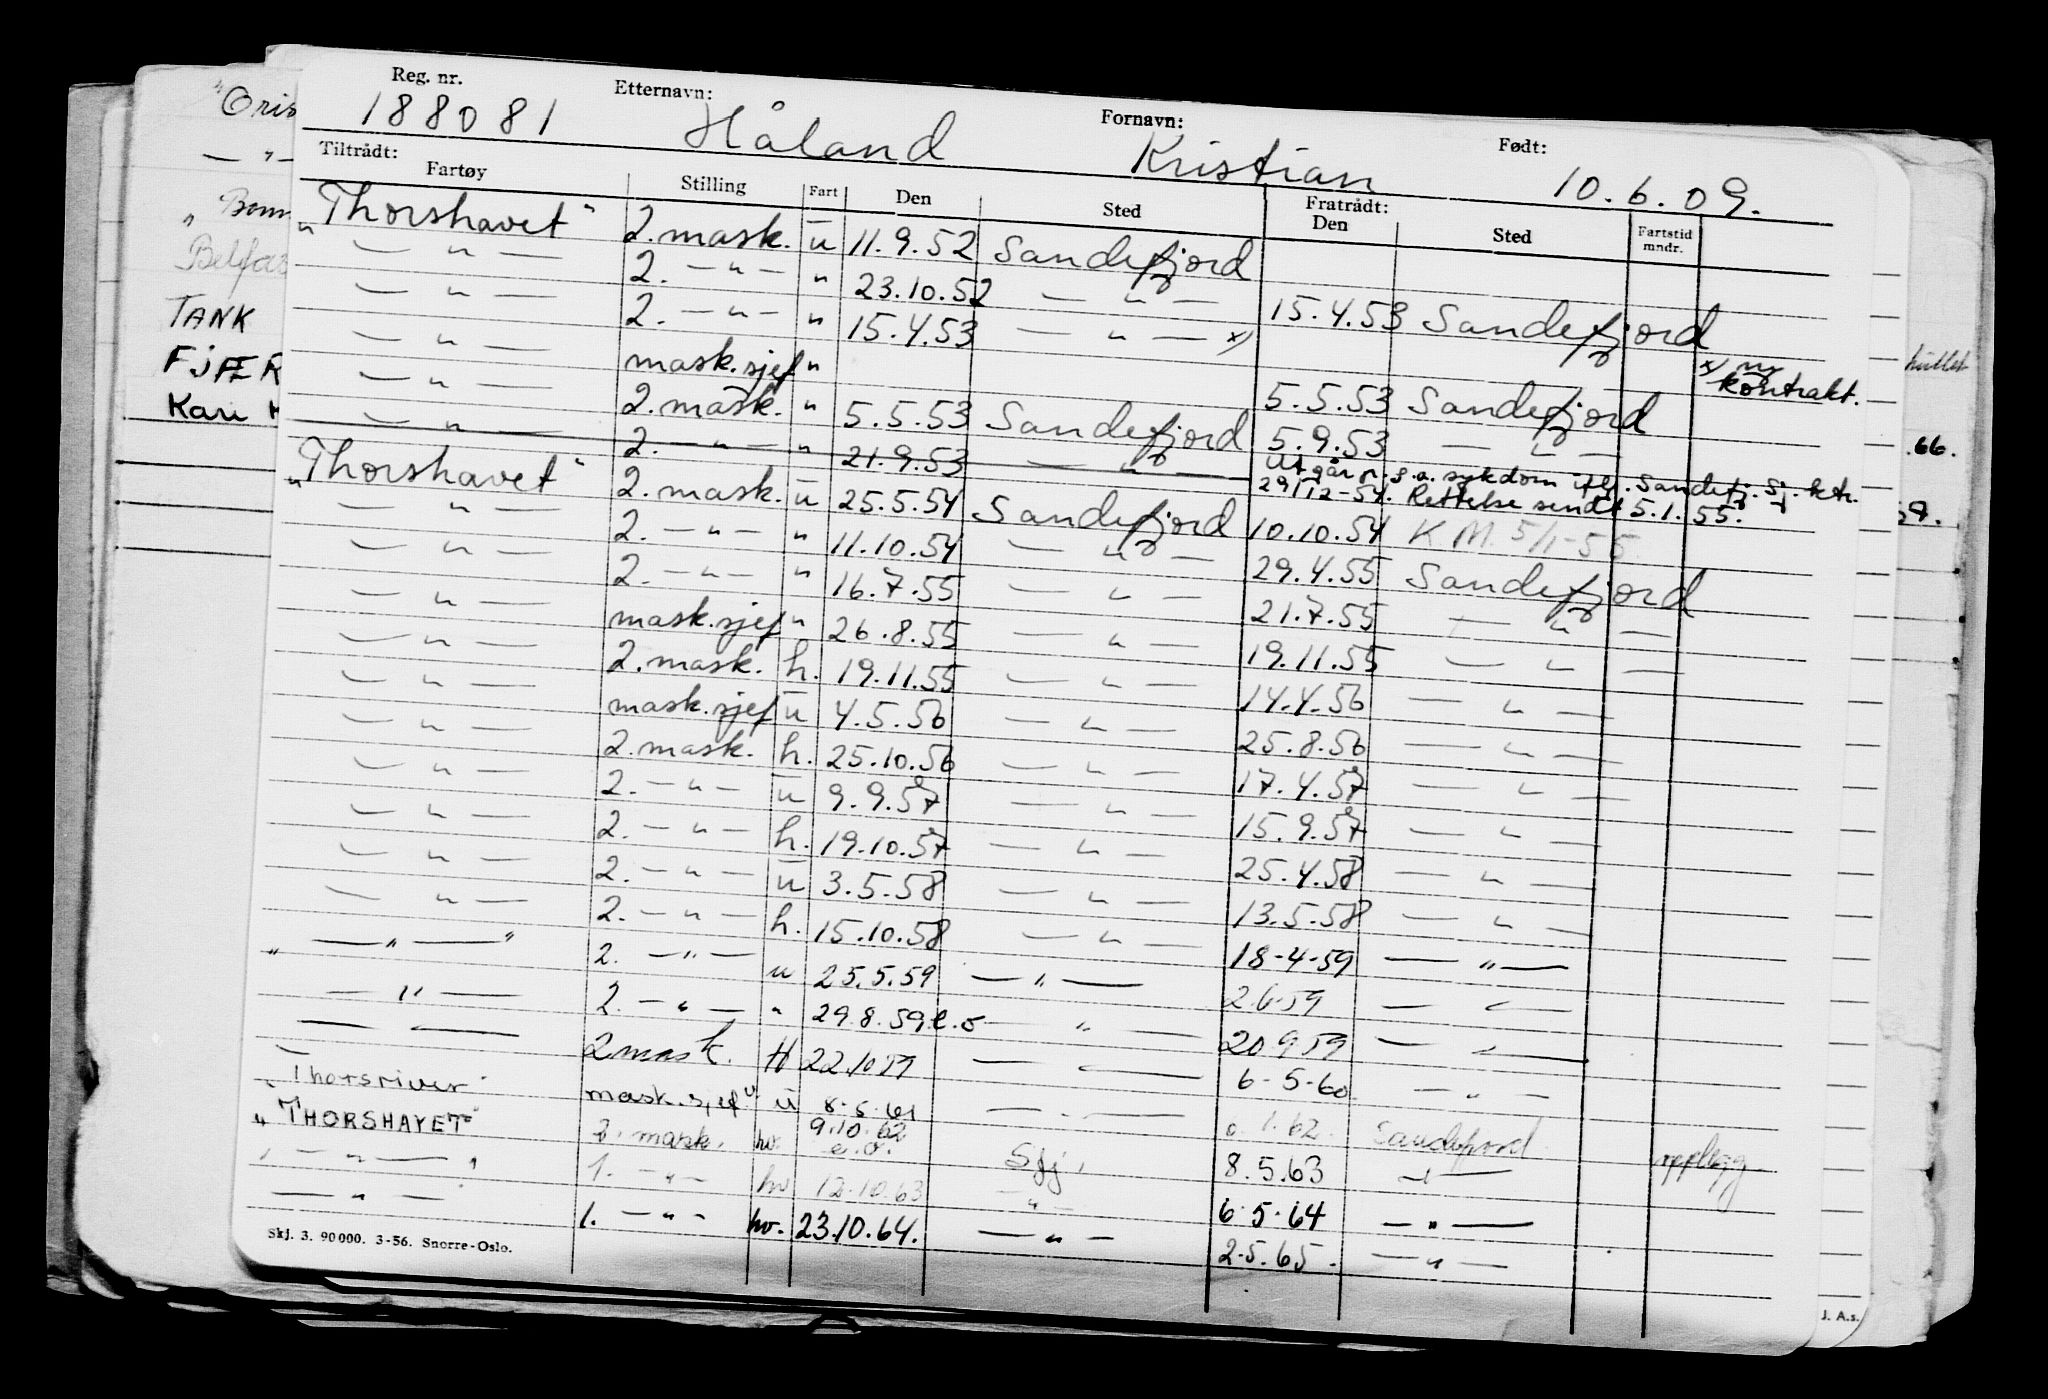 Reg. nr. Etternavn: Fornavn: Født:
188081 Håland Kristian 10.6.09.
Tiltrådt: Fratrådt:
Fartøy Stilling Fart Den Sted Den Sted Fartstid mndr.
"Thorshavet" 2. mask. ū 11.9.52 Sandefjord
— " — 2. — " — " 23.10.52 — " — 15.4.53 Sandefjord
— " — 2. — " — " 15.4.53 — " — x) x) ny kontrakt.
— " — mask.sjef " 5.5.53 Sandefjord
— " — 2. mask. " 5.5.53 Sandefjord 5.9.53 — " —
— " — 2. — " — " 21.9.53 — " — Utgår p.g.a. sykdom iflg. Sandefj. Sj.ktr. 29/12-54. Rettelse sendt 5.1.55.
"Thorshavet" 2. mask. ū 25.5.54 Sandefjord 10.10.54 K.M. 5/1-55
— " — 2. — " — " 11.10.54 — " — 29.4.55 Sandefjord
— " — 2. — " — " 16.7.55 — " — 21.7.55 — " —
— " — mask.sjef " 26.8.55 — " — 19.11.55 — " —
— " — 2. mask. h. 19.11.55 — " — 14.4.56 — " —
— " — mask.sjef ū 4.5.56 — " — 25.8.56 — " —
— " — 2. mask. h. 25.10.56 — " — 17.4.57 — " —
— " — 2. — " — ū 9.9.57 — " — 15.9.57 — " —
— " — 2. — " — h. 19.10.57 — " — 25.4.58 — " —
— " — 2. — " — ū 3.5.58 — " — 13.5.58 — " —
— " — 2. — " — h. 15.10.58 — " — 18-4-59 — " —
" — " — " 2. — " — u 25.5.59 — " — 2.6.59 — " —
— " — 2. — " — " 29.8.59 e.o — " — 20 9 59 — " —
— — 2 mask. H 22.10 59 — — 6-5-60 — " —
"Thorsriver" mask.sjef ū 8.5.61 — — 1.62. Sandefjord opplegg
"THORSHAVET" 2. mask. hv. 9.10.62 e.o. Sfj. 8.5.63 — " —
" — " — " 1. — " — hv 12.10.63 — " — 6.5.64 — " —
— " — 1. — " — hv. 23.10.64. — " — 2.5.65. — " —
Skj. 3. 90 000. 3-56. Snorre-Oslo.
TANK
Kari
.66.
J. A.s.